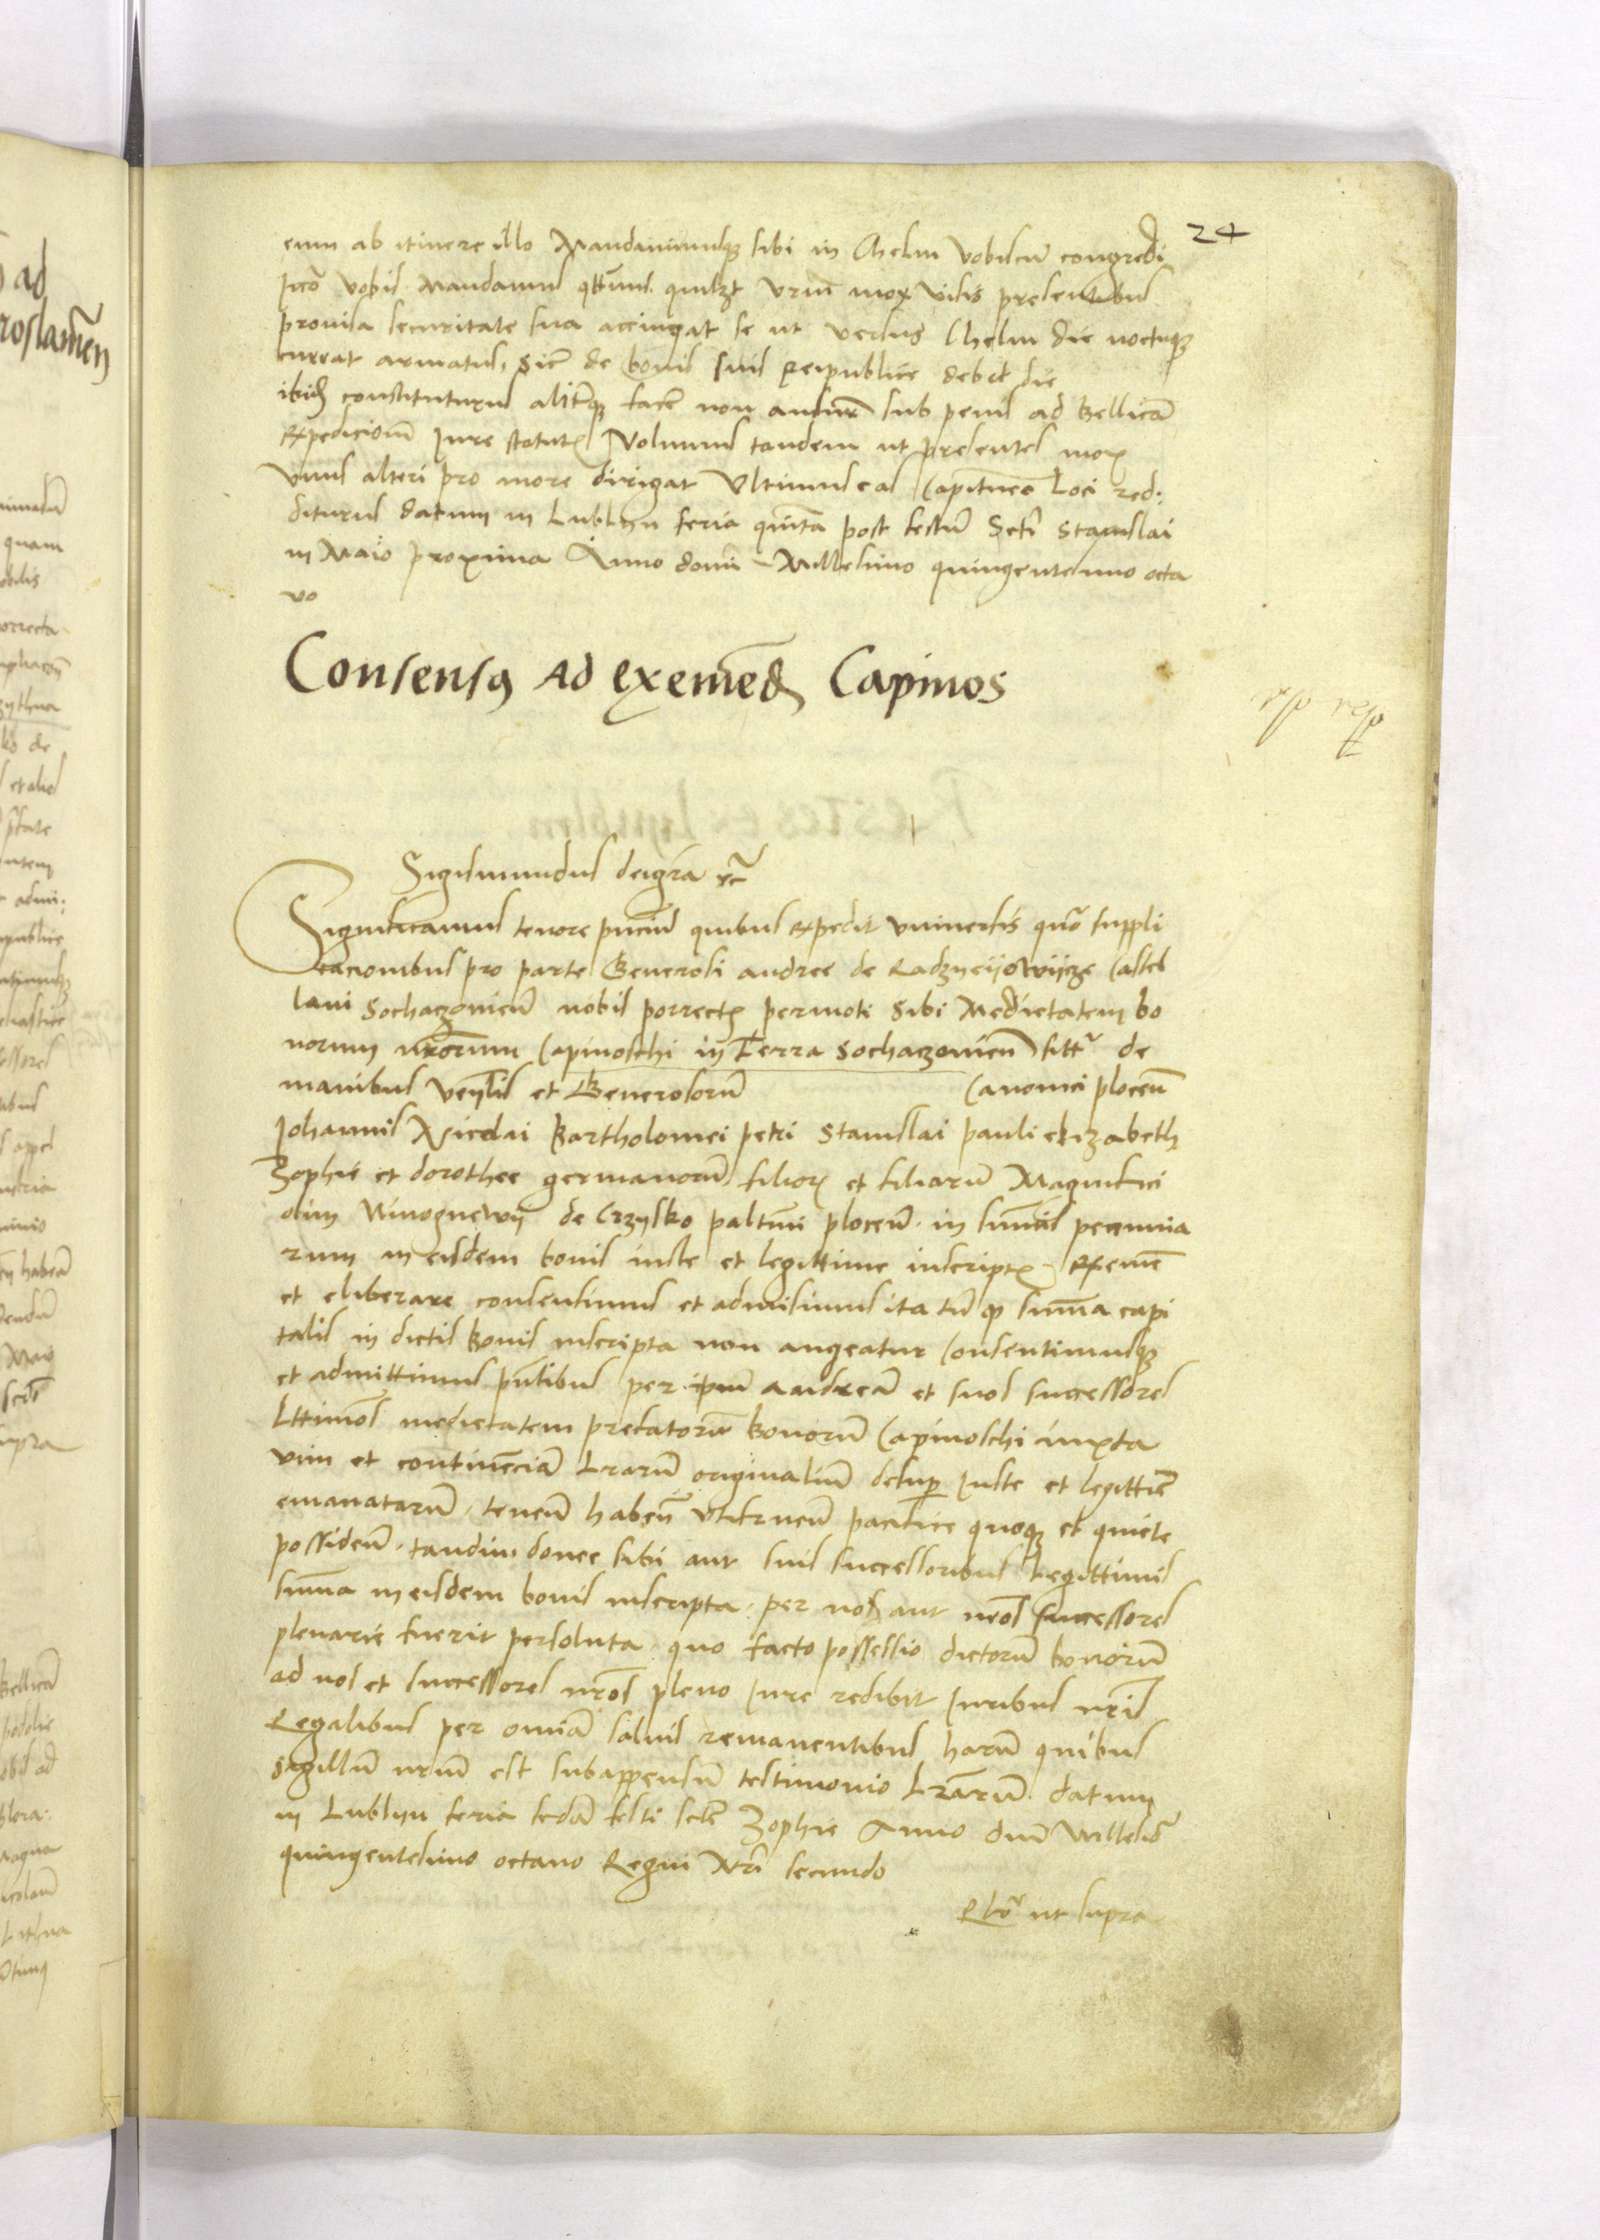 24
eum ab itinere illo Mandauimusq sibi in Chelm vobiscū congredi
Iccō vobis Mandamus qtn̄us quilzt vrm̄ mox visis presentibus
prouisa securitate sua accingat se ut versus Chelm die noctuq
currat armatus, Sic̄ de bonis suis Reipublice debet die
ibid constituturus alitq facē non ausur sub penis ad Bellicā
expedicionē Iure statutꝭ Volumus tandem ut presentes mox
vnus alteri pro more dirigat Vltimus eas Capitneo Loci red:
diturus datum in Lublyn feria quīta post festū Scti Stanislai
in Maio proxima Anno domi Millesimo quingentesimo octa
vo
Consensus Ad exemēd Capinos
Sigismundus dei grā ꝛc̄
Significamus tenore pn̄ciū quibus expedit vniuersis quō suppli
cacionibus pro parte Generosi andree de Radzyeyowycze Castel
lani Sochaczouien̄ nobis porrectꝭ permoti Sibi Medietatem bo
norum nrōrum Capinoschi in Terra Sochaczouien̄ sittꝭ de
manibus ven̄lis et Generosorū Canonici plocen̄
Johannis Nicolai Bartholomei petri Stanislai pauli elizabeth
Zophie et dorothee germanorū filioꝝ et filiarū Magnifici
olim Ninognewy de Crzysko paltini plocen̄ in sūmis pecunia
rum in eisdem bonis iuste et legittime inscriptꝭ Exemē
et eliberare consensimus et admisimus ita tn̄ qp sūma capi
talis in dictis Bonis inscripta non augeatur Consentimusq
et admittimus pn̄tibus per ipm̄ Andreā et suos successores
Lttimos medietatem prefatorū bonorū Capinoschi iuxta
vim et continenciā Lrārū originaliū desup Iuste et legittīe
emanatarū tenen̄ haben̄ vtifruen̄ pacifice quoq et quiete
possiden̄ tandiu donec sibi aut suis successoribus Legittimis
sūma in eisdem bonis inscripta per nos aut nrōs successores
plenarie fuerit persoluta quo facto possessio dictorū bonorū
ad nos et successores nrōs pleno Iure redibit Iuribus nrīs
Regalibus per omiā saluis remanentibus harū quibus
Sigillū nrūm est subappensū testimonio Lrārū datum
in Lublyn feria scdā festi scte Zophie Anno dnī Millesiō
quingentesimo octauo Regni Nrī secundo
Rlō ut supra